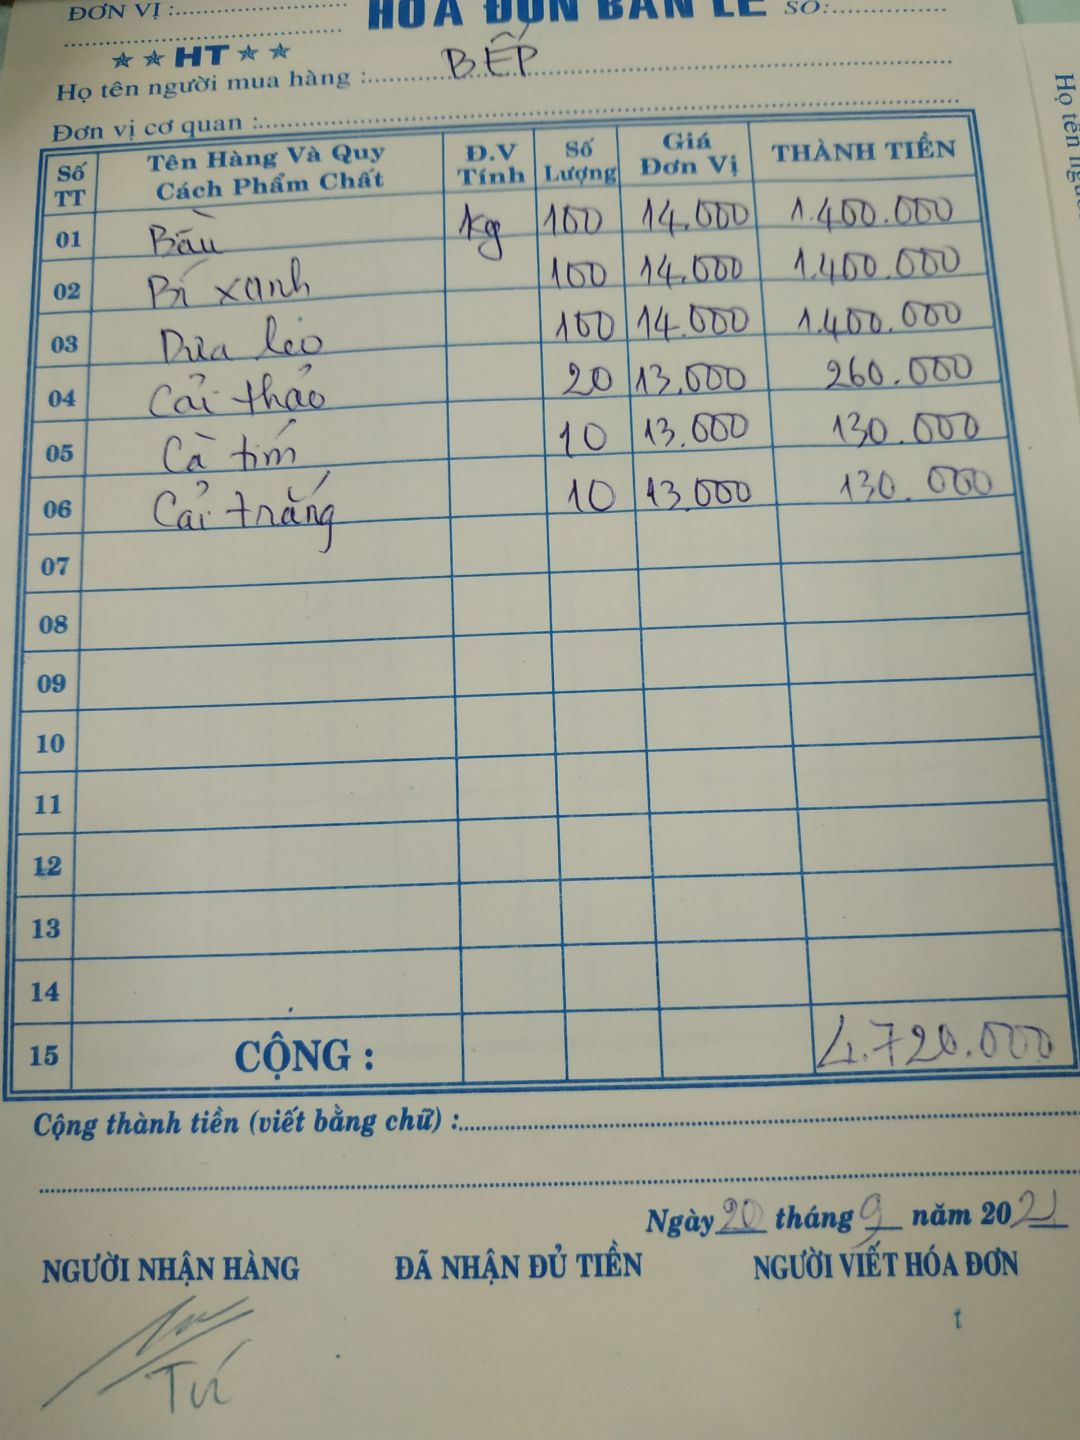 ĐƠN VỊ :
HÓA ĐƠN BÁN LẺ
SỐ:
★ ★ HT ★ ★
Họ tên người mua hàng : BẾP
Đơn vị cơ quan :
Số TT | Tên Hàng Và Quy Cách Phẩm Chất | Đ.V Tính | Số Lượng | Giá Đơn Vị | THÀNH TIỀN
01 Bầu kg 100 14.000 1.400.000
02 Bí xanh 100 14.000 1.400.000
03 Dưa leo 100 14.000 1.400.000
04 Cải thảo 20 13.000 260.000
05 Cà tím 10 13.000 130.000
06 Cải trắng 10 13.000 130.000
07
08
09
10
11
12
13
14
15 CỘNG : 4.720.000
Cộng thành tiền (viết bằng chữ) :
Ngày 20 tháng 9 năm 2021
NGƯỜI NHẬN HÀNG ĐÃ NHẬN ĐỦ TIỀN NGƯỜI VIẾT HÓA ĐƠN
Tú
Họ tên người